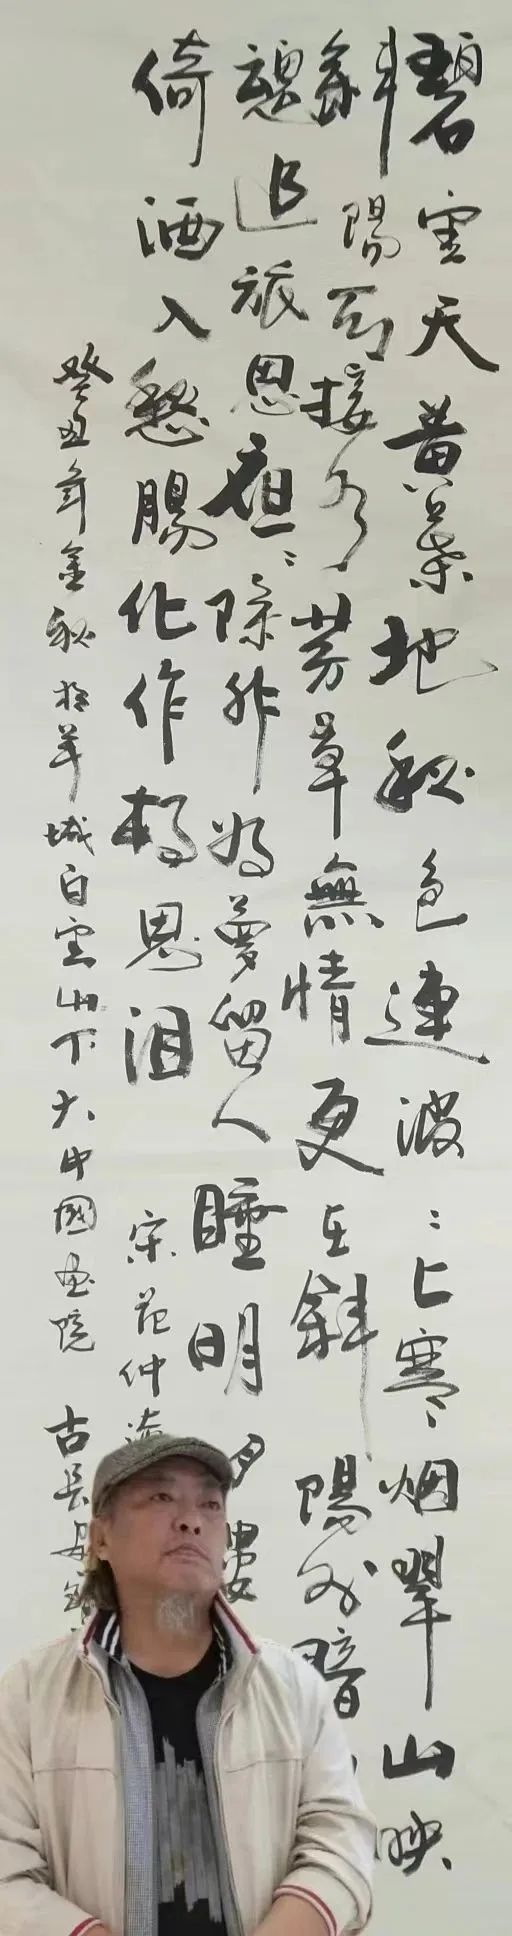 碧云天黄葉地秋色連波〻上寒烟翠山映
斜陽天接水芳草無情更在斜陽外暗
魂追旅思夜〻除非好夢留人睡明月樓
倚酒入愁腸化作相思泪
宋范仲淹
癸丑年金秋於羊城白雲山下大中國画院 古長安